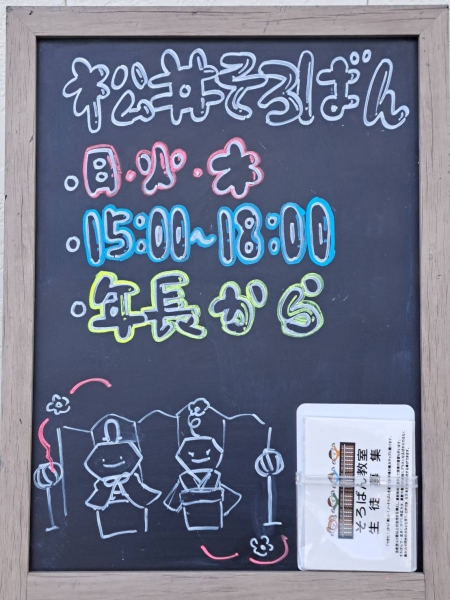 松井そろばん
・月・火・木
・15:00~18:00
・年長から
そろばん教室
生徒募集